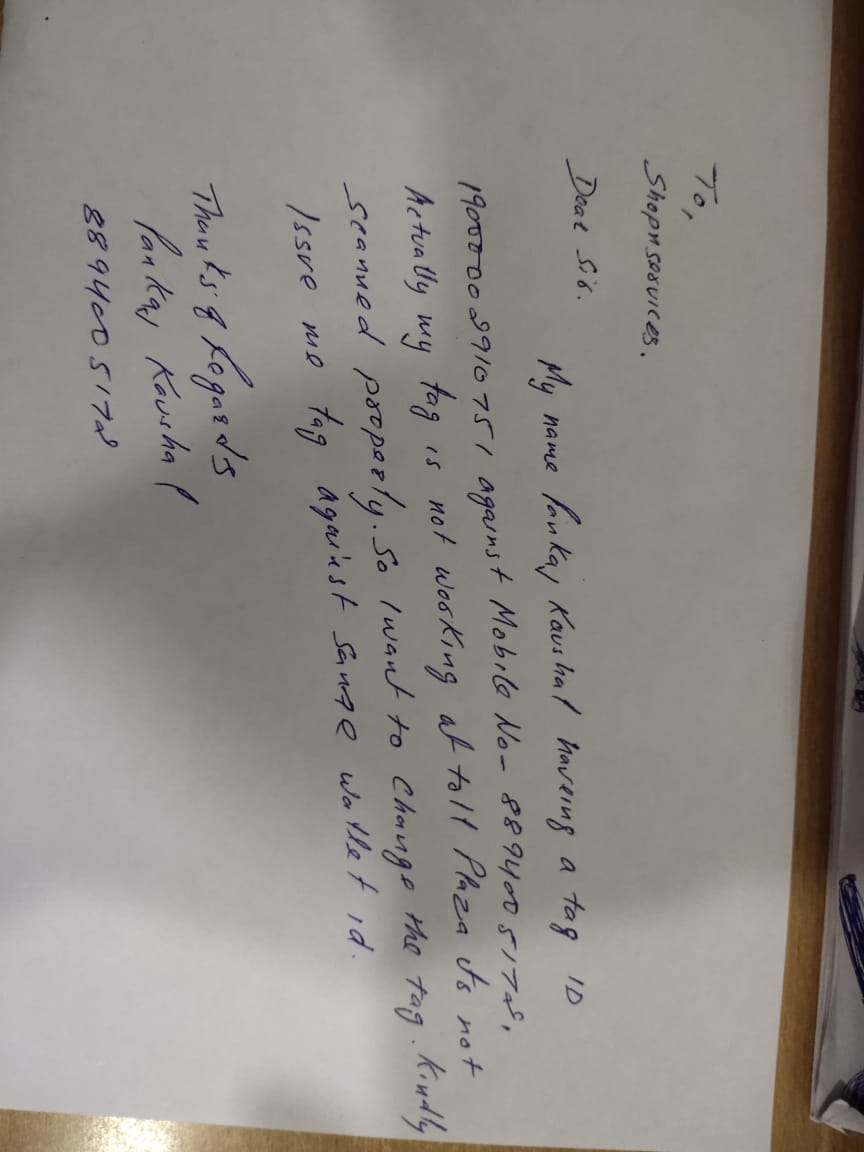 To,
Shopnservices.
Dear Sir.
My name Pankaj Kaushal haveing a tag ID
against Mobile No- 8894005178,
Actually my tag is not working at toll Plaza its not
scanned properly. So I want to change the tag. Kindly
Issue me tag against same wallet id.
Thanks & Regards
Pankaj Kaushal
8894005178